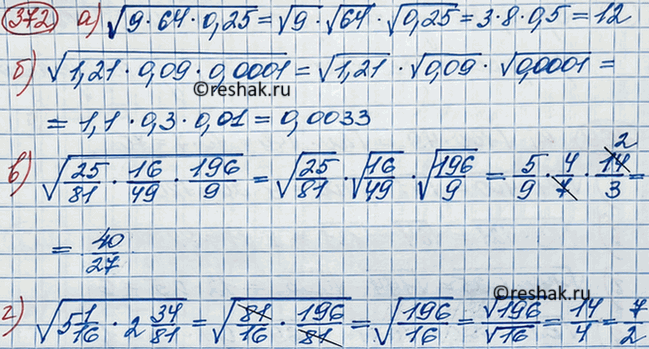 372 а) √(9·64·0,25) = √9·√64·√0,25 = 3·8·0,5 = 12
б) √(1,21·0,09·0,0001) = √1,21·√0,09·√0,0001 =
©reshak.ru
= 1,1·0,3·0,01 = 0,0033
в) √(25/81·16/49·196/9) = √(25/81)·√(16/49)·√(196/9) = 5/9·4/7·14/3 = 2
= 40/27
©reshak.ru
г) √(5 1/16·2 34/81) = √(81/16·196/81) = √(196/16) = √196/√16 = 14/4 = 7/2